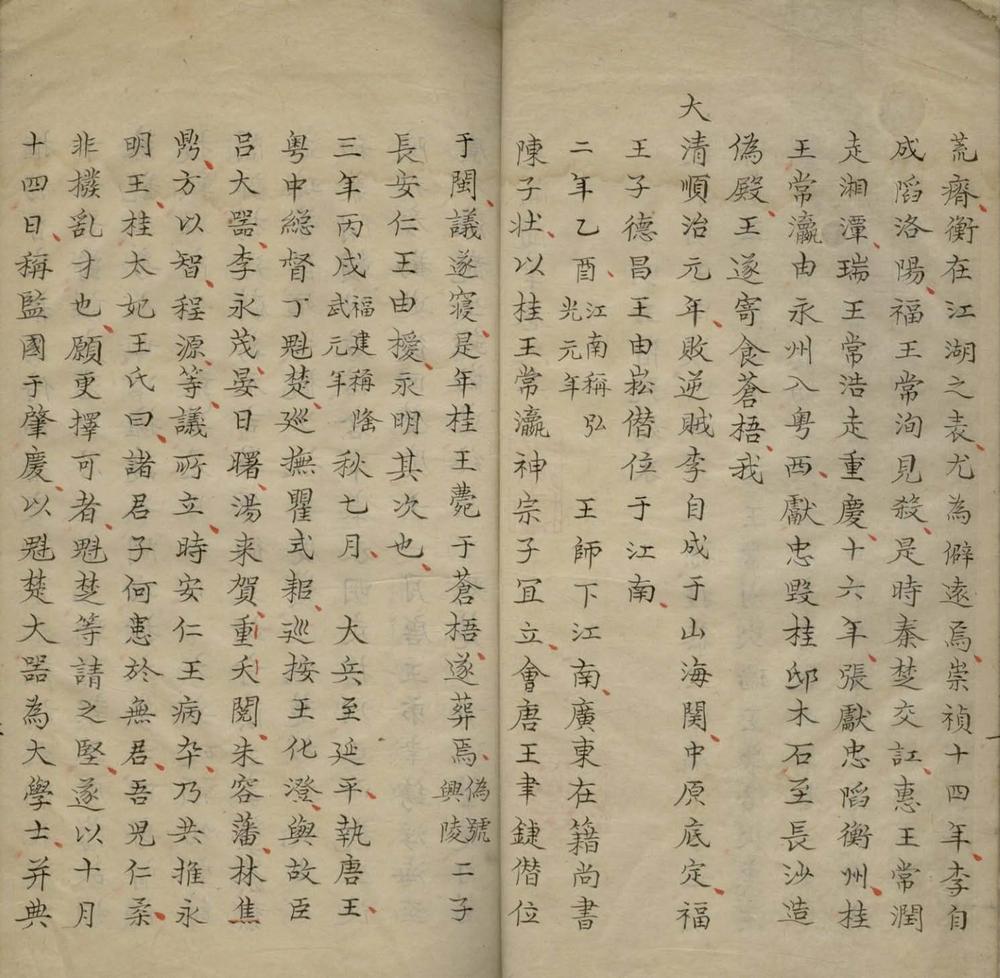 荒瘠衡在江湖之表尤為僻遠焉崇禎十四年李自
成䧟洛陽福王常洵見殺是時秦楚交訌惠王常潤
走湘潭瑞王常浩走重慶十六年張獻忠䧟衡州桂
王常瀛由永州入粵西獻忠毀桂邸木石至長沙造
偽殿王遂寄食蒼梧我
大清順治元年敗逆賊李自成于山海関中原底定福
王子德昌王由崧僣位于江南
二年乙酉江南稱弘光元年王師下江南廣東在籍尚書
陳子壯以桂王常瀛神宗子冝立會唐王聿鍵僣位
于閩議遂寢是年桂王薨于蒼梧遂葬焉偽號興陵二子
長安仁王由㮙永明其次也
三年丙戌福建稱隆武元年秋七月大兵至延平執唐王
粵中総督丁魁楚廵撫瞿式耜廵按王化澄與故臣
吕大器李永茂晏日曙湯来賀重夭閱朱容藩林焦
鼎方以智程源等議所立時安仁王病卒乃共推永
明王桂太妃王氏曰諸君子何患於無君吾児仁柔
非撥乱才也願更擇可者魁楚等請之堅遂以十月
十四日稱監國于肇慶以魁楚大器為大學士并典